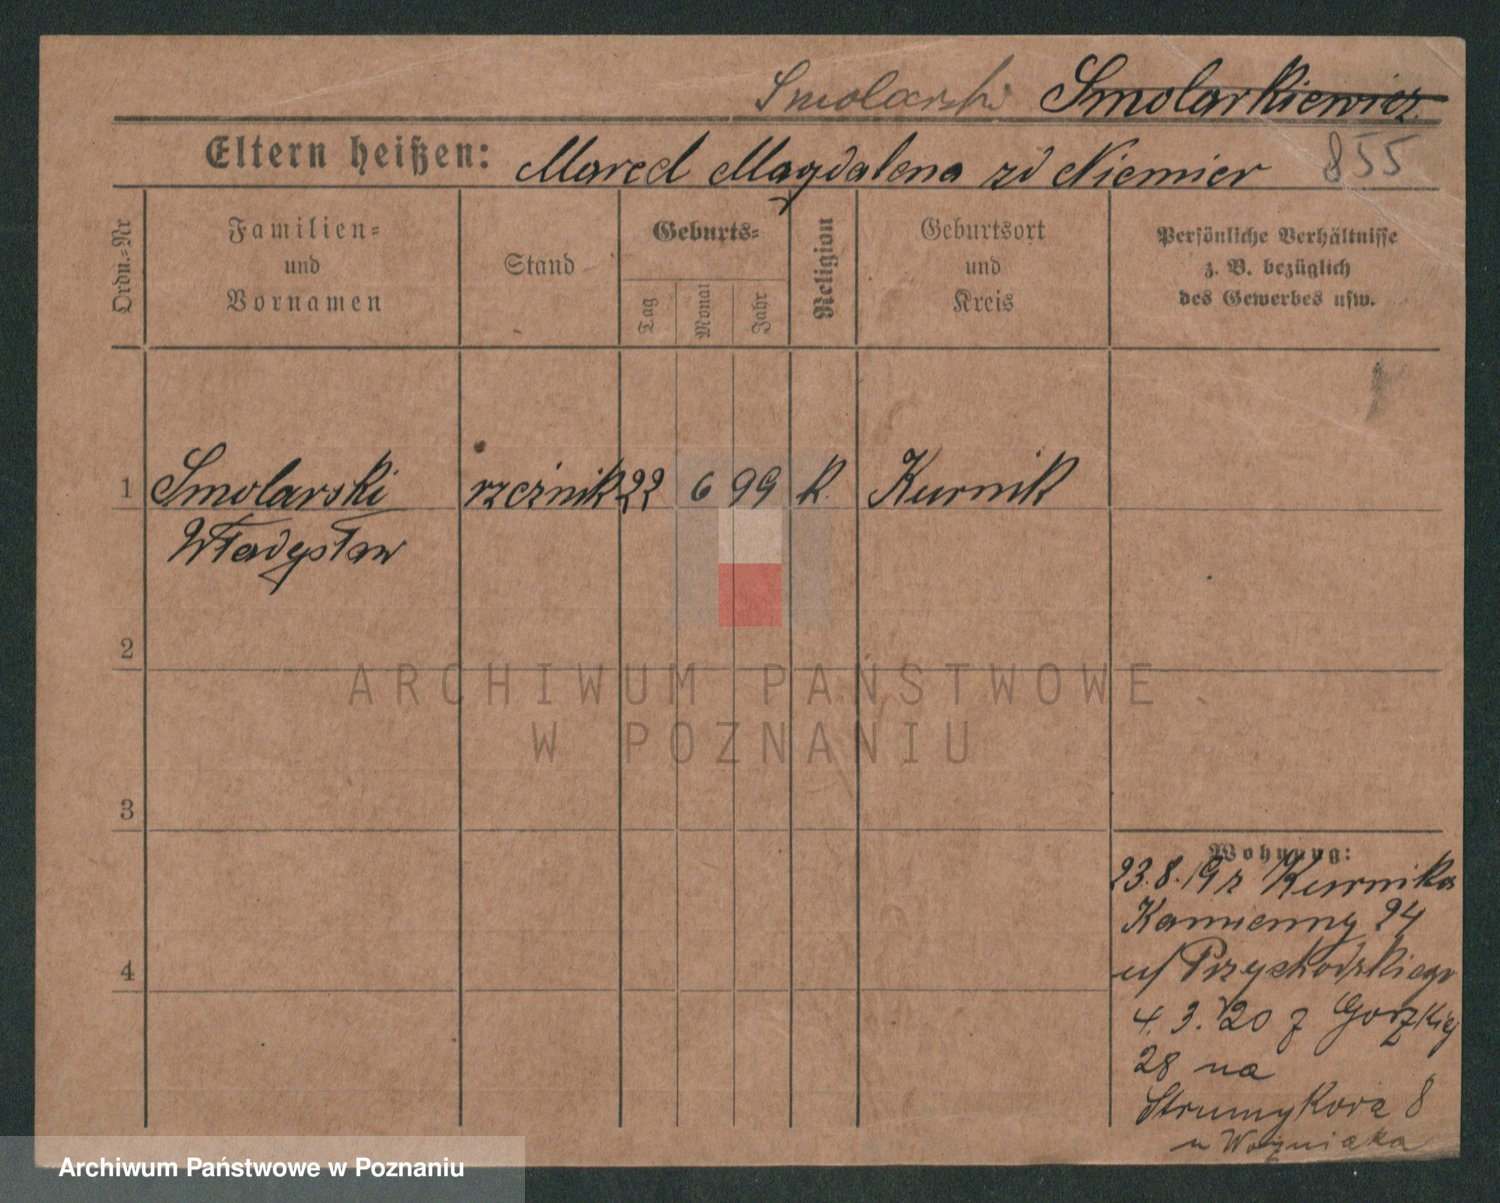 Smolarski Smolarkiewicz
Eltern heißen: Marcel Magdalena zd Niemier 855
Ordn.-Nr
Familien-
und
Vornamen
Stand
Geburts-
Tag
Monat
Jahr
Religion
Geburtsort
und
Kreis
Persönliche Verhältnisse
z. B. bezüglich
des Gewerbes usw.
1 Smolarski rzeźnik 22 6 99 k. Kurnik
Władysław
2
3
4
Wohnung:
23.8.19 z Kurnika
Kamienny 24
u/ Przychodzkiego
4.3.20 z Gorzkiej
28 na
Strumykowa 8
u Woźniaka
ARCHIWUM PAŃSTWOWE
W POZNANIU
Archiwum Państwowe w Poznaniu